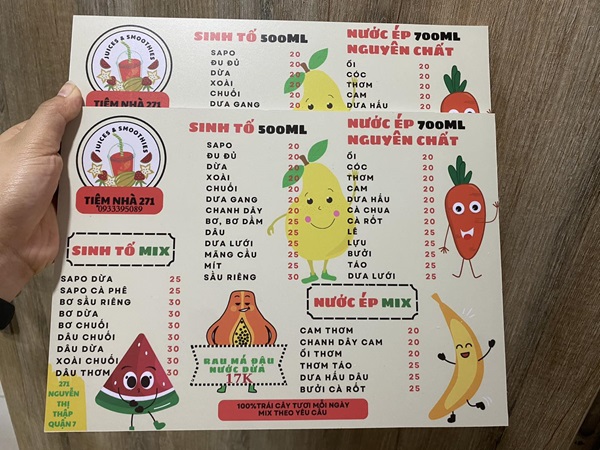 JUICES & SMOOTHIES
TIỆM NHÀ 271
SINH TỐ 500ML
SAPO 20
ĐU ĐỦ 20
DỪA 20
XOÀI 20
CHUỐI 20
DƯA GANG 20
NƯỚC ÉP 700ML
NGUYÊN CHẤT
ỔI 20
CÓC 20
THƠM 20
CAM 20
DƯA HẤU 20
JUICES & SMOOTHIES
TIỆM NHÀ 271
0933395089
SINH TỐ 500ML
SAPO 20
ĐU ĐỦ 20
DỪA 20
XOÀI 20
CHUỐI 20
DƯA GANG 20
CHANH DÂY 20
BƠ, BƠ DẦM 25
DÂU 25
DƯA LƯỚI 25
MÃNG CẦU 25
MÍT 25
SẦU RIÊNG 30
NƯỚC ÉP 700ML
NGUYÊN CHẤT
ỔI 20
CÓC 20
THƠM 20
CAM 20
DƯA HẤU 20
CÀ CHUA 20
CÀ RỐT 20
LÊ 25
LỰU 25
BƯỞI 25
TÁO 25
DƯA LƯỚI 25
SINH TỐ MIX
SAPO DỪA 25
SAPO CÀ PHÊ 25
BƠ SẦU RIÊNG 30
BƠ DỪA 30
BƠ CHUỐI 30
DÂU CHUỐI 30
DÂU DỪA 30
XOÀI CHUỐI 30
DÂU THƠM 30
271
NGUYỄN
THỊ
THẬP
QUẬN 7
RAU MÁ ĐẬU
NƯỚC DỪA
17K
NƯỚC ÉP MIX
CAM THƠM 20
CHANH DÂY CAM 20
ỔI THƠM 20
THƠM TÁO 25
DƯA HẤU DÂU 25
BƯỞI CÀ RỐT 25
100%TRÁI CÂY TƯƠI MỖI NGÀY
MIX THEO YÊU CẦU